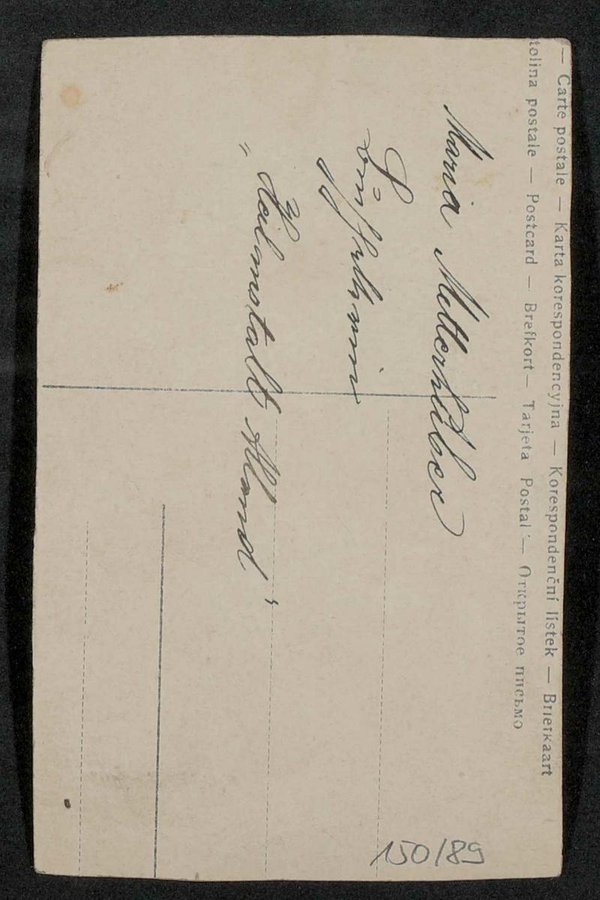 — Carte postale — Karta korespondencyjna — Korespondenční lístek — Briefkaart
tolina postale — Postcard — Brefkort — Tarjeta Postal — Открытое письмо
Maria Mitterhuber
„Heilanstalt Alland“
150/89